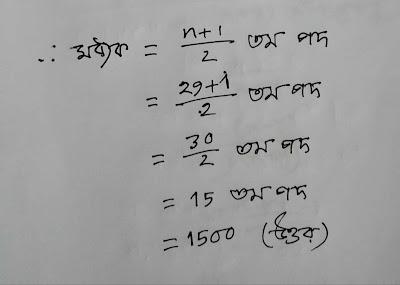 ∴ মধ্যক = n+1/2 তম পদ
= 29+1/2 তম পদ
= 30/2 তম পদ
= 15 তম পদ
= 1500 (উত্তর)